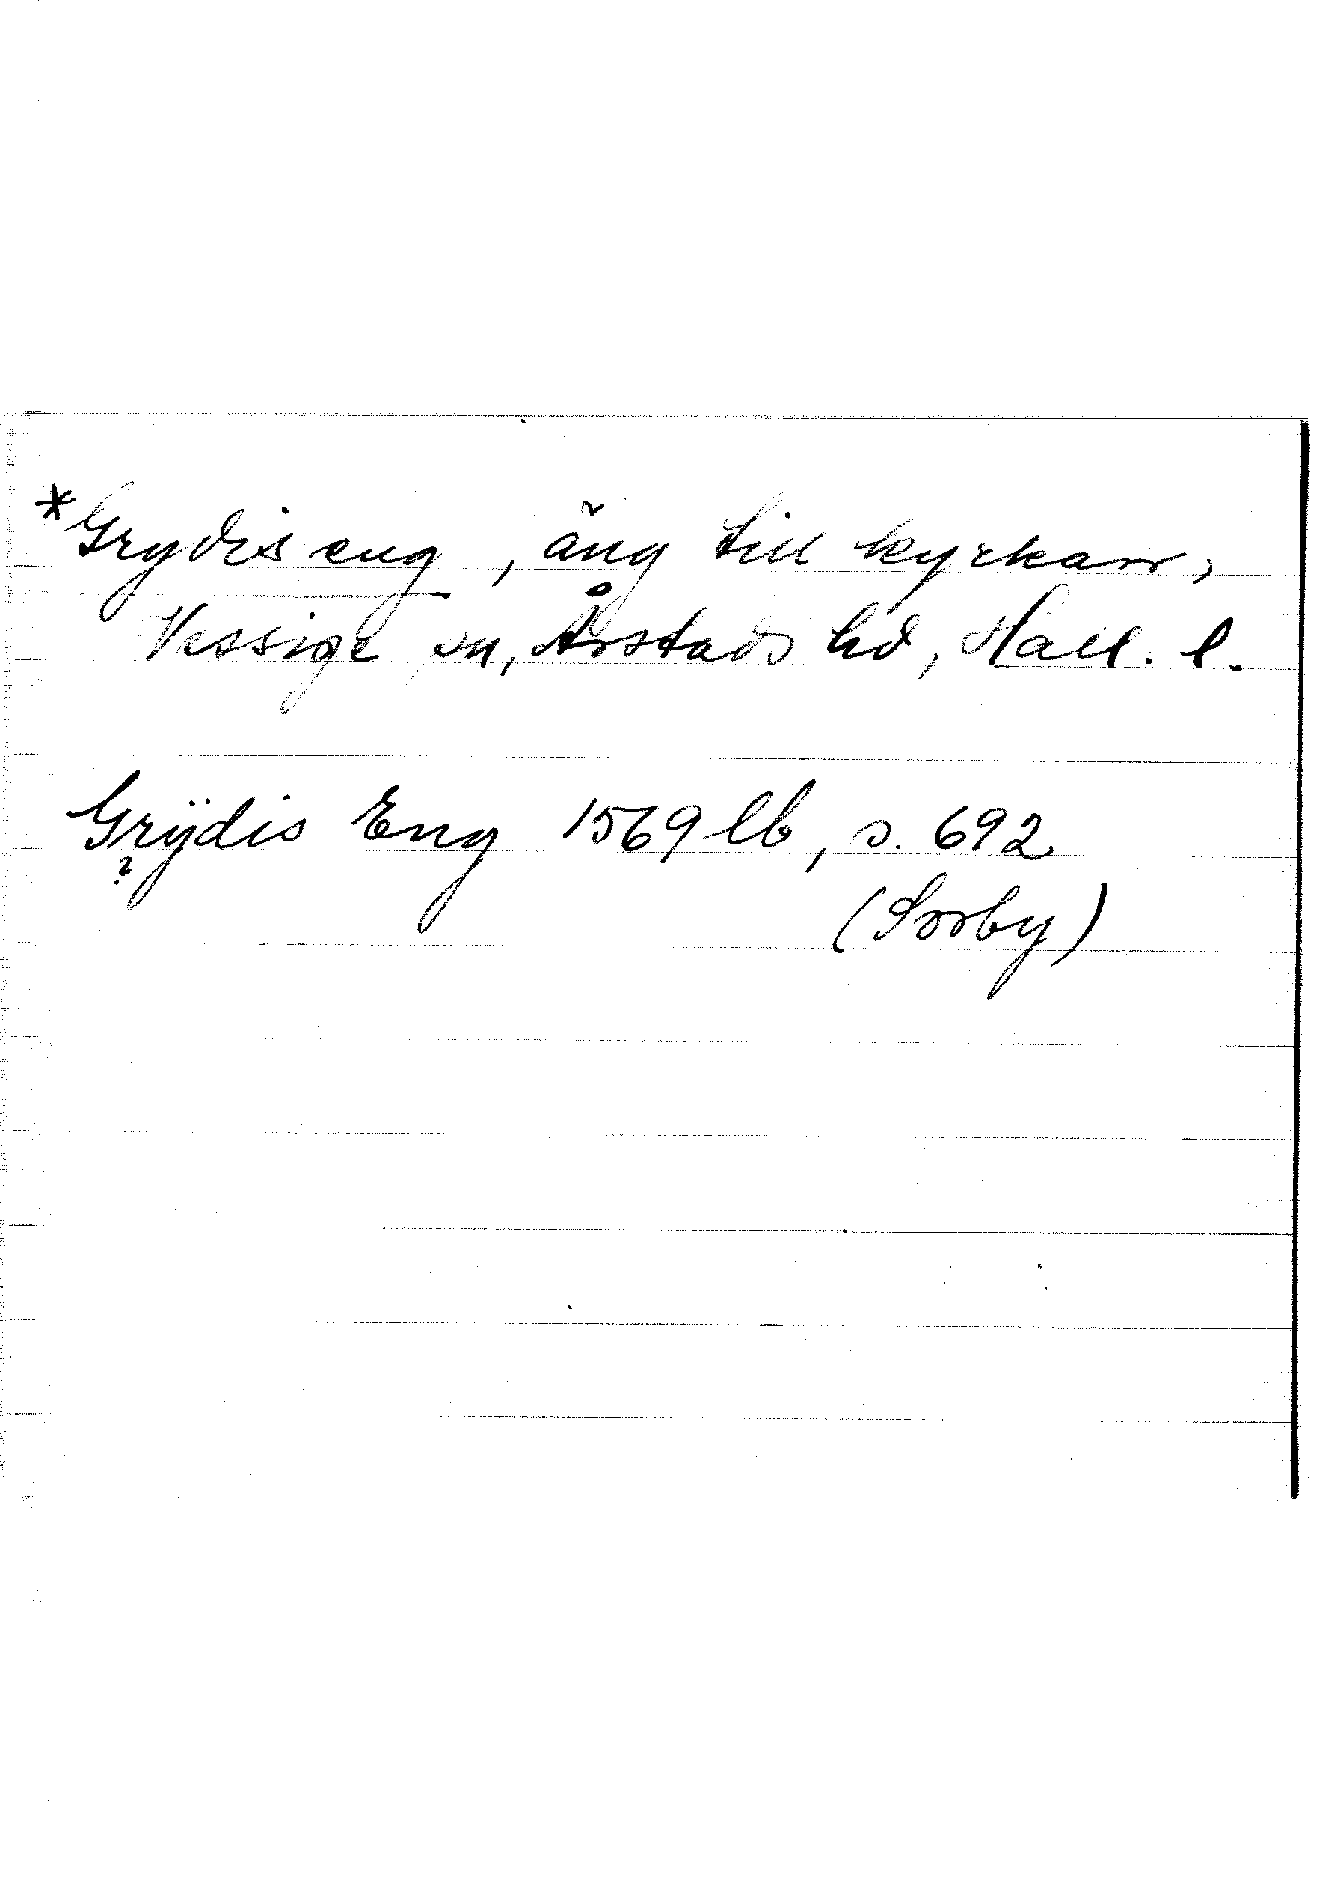 *Grydis eng, äng till kyrkan,
Vessige sn, Årstads hd, Hall. l.
Grÿdis Eng 1569 lb, s. 692
?
(Sorby)